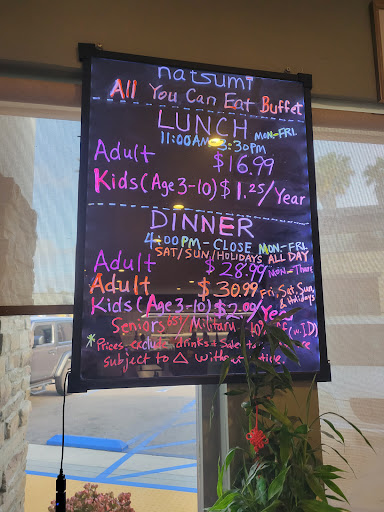 natsumi
All You Can Eat Buffet
LUNCH MON-FRI
11:00AM-3:30PM
Adult $16.99
Kids (Age 3-10) $1.25/Year
DINNER
4:00PM-CLOSE MON-FRI
SAT/SUN/HOLIDAYS ALL DAY
Adult $28.99 Mon-Thurs
Adult $30.99 Fri, Sat, Sun,
& Holidays
Kids (Age 3-10) $2.00/Year
Seniors 65+/Military (w/ID)
*Prices exclude drinks +
subject to △ without